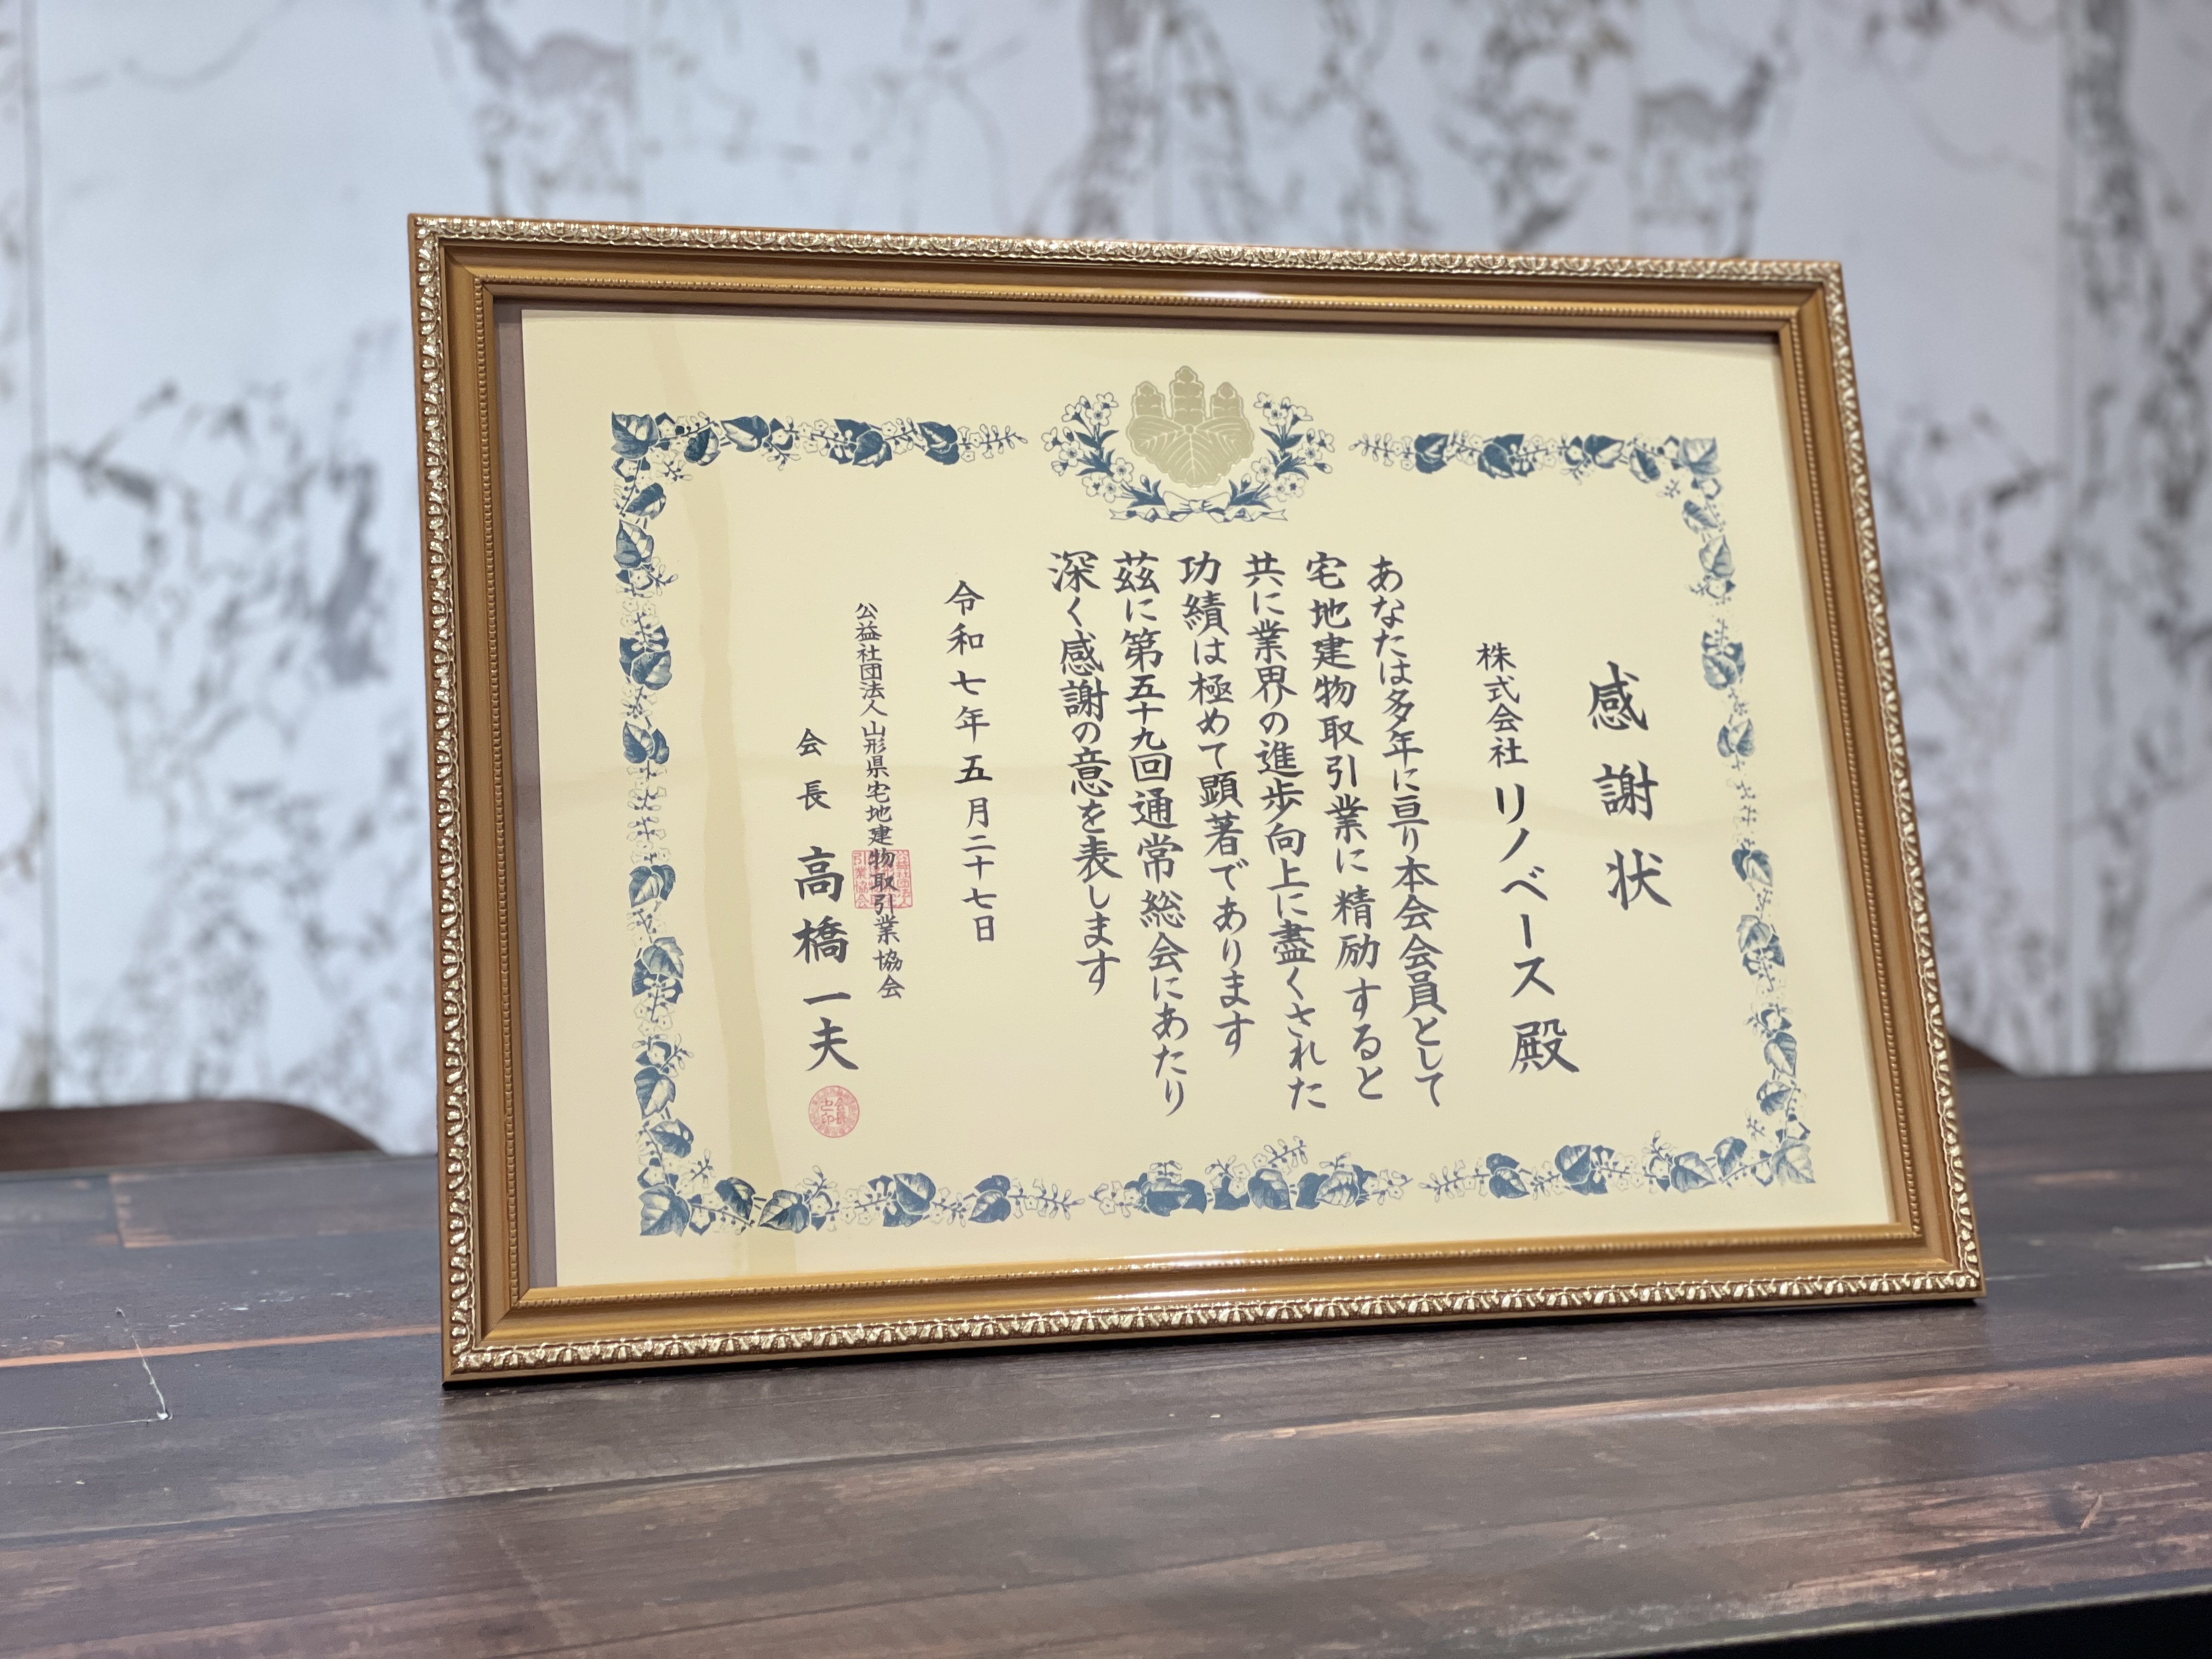 感謝状
株式会社リノベース殿
あなたは多年に亘り本会会員として
宅地建物取引業に精励すると
共に業界の進歩向上に盡くされた
功績は極めて顕著であります
茲に第五十九回通常総会にあたり
深く感謝の意を表します
令和七年五月二十七日
公益社団法人山形県宅地建物取引業協会
会長 高橋一夫